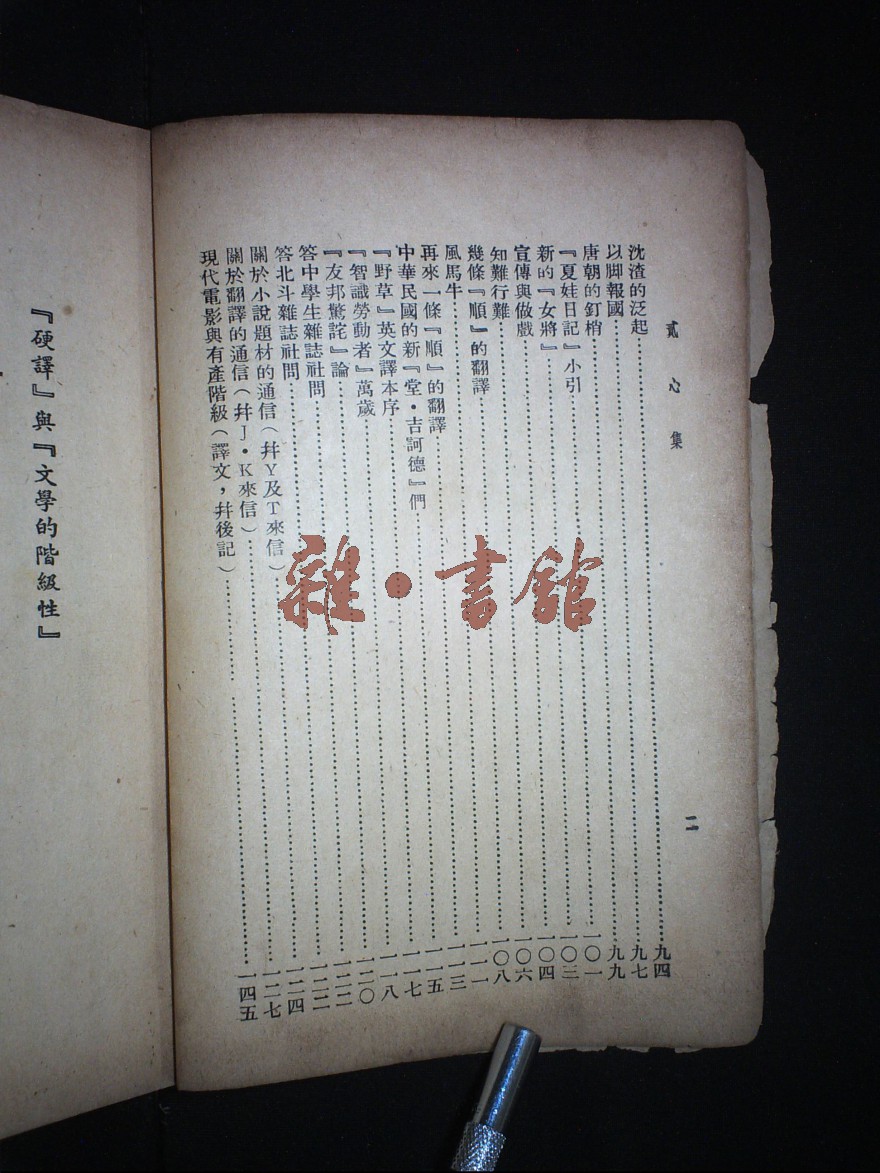 貳心集
二
沈渣的泛起……九四
以脚報國……九七
唐朝的釘梢……九九
『夏娃日記』小引……一〇一
新的『女將』……一〇三
宣傳與做戲……一〇四
知難行難……一〇六
幾條『順』的翻譯……一〇八
風馬牛……一一一
再來一條『順』的翻譯……一一三
中華民國的新『堂・吉訶德』們……一一五
『野草』英文譯本序……一一七
『智識勞動者』萬歲……一一八
『友邦驚詫』論……一二〇
答中學生雜誌社問……一二二
答北斗雜誌社問……一二二
關於小說題材的通信（幷Y及T來信）……一二四
關於翻譯的通信（幷J・K來信）……一二七
現代電影與有產階級（譯文，幷後記）……一四五
『硬譯』與『文學的階級性』
雜・書館